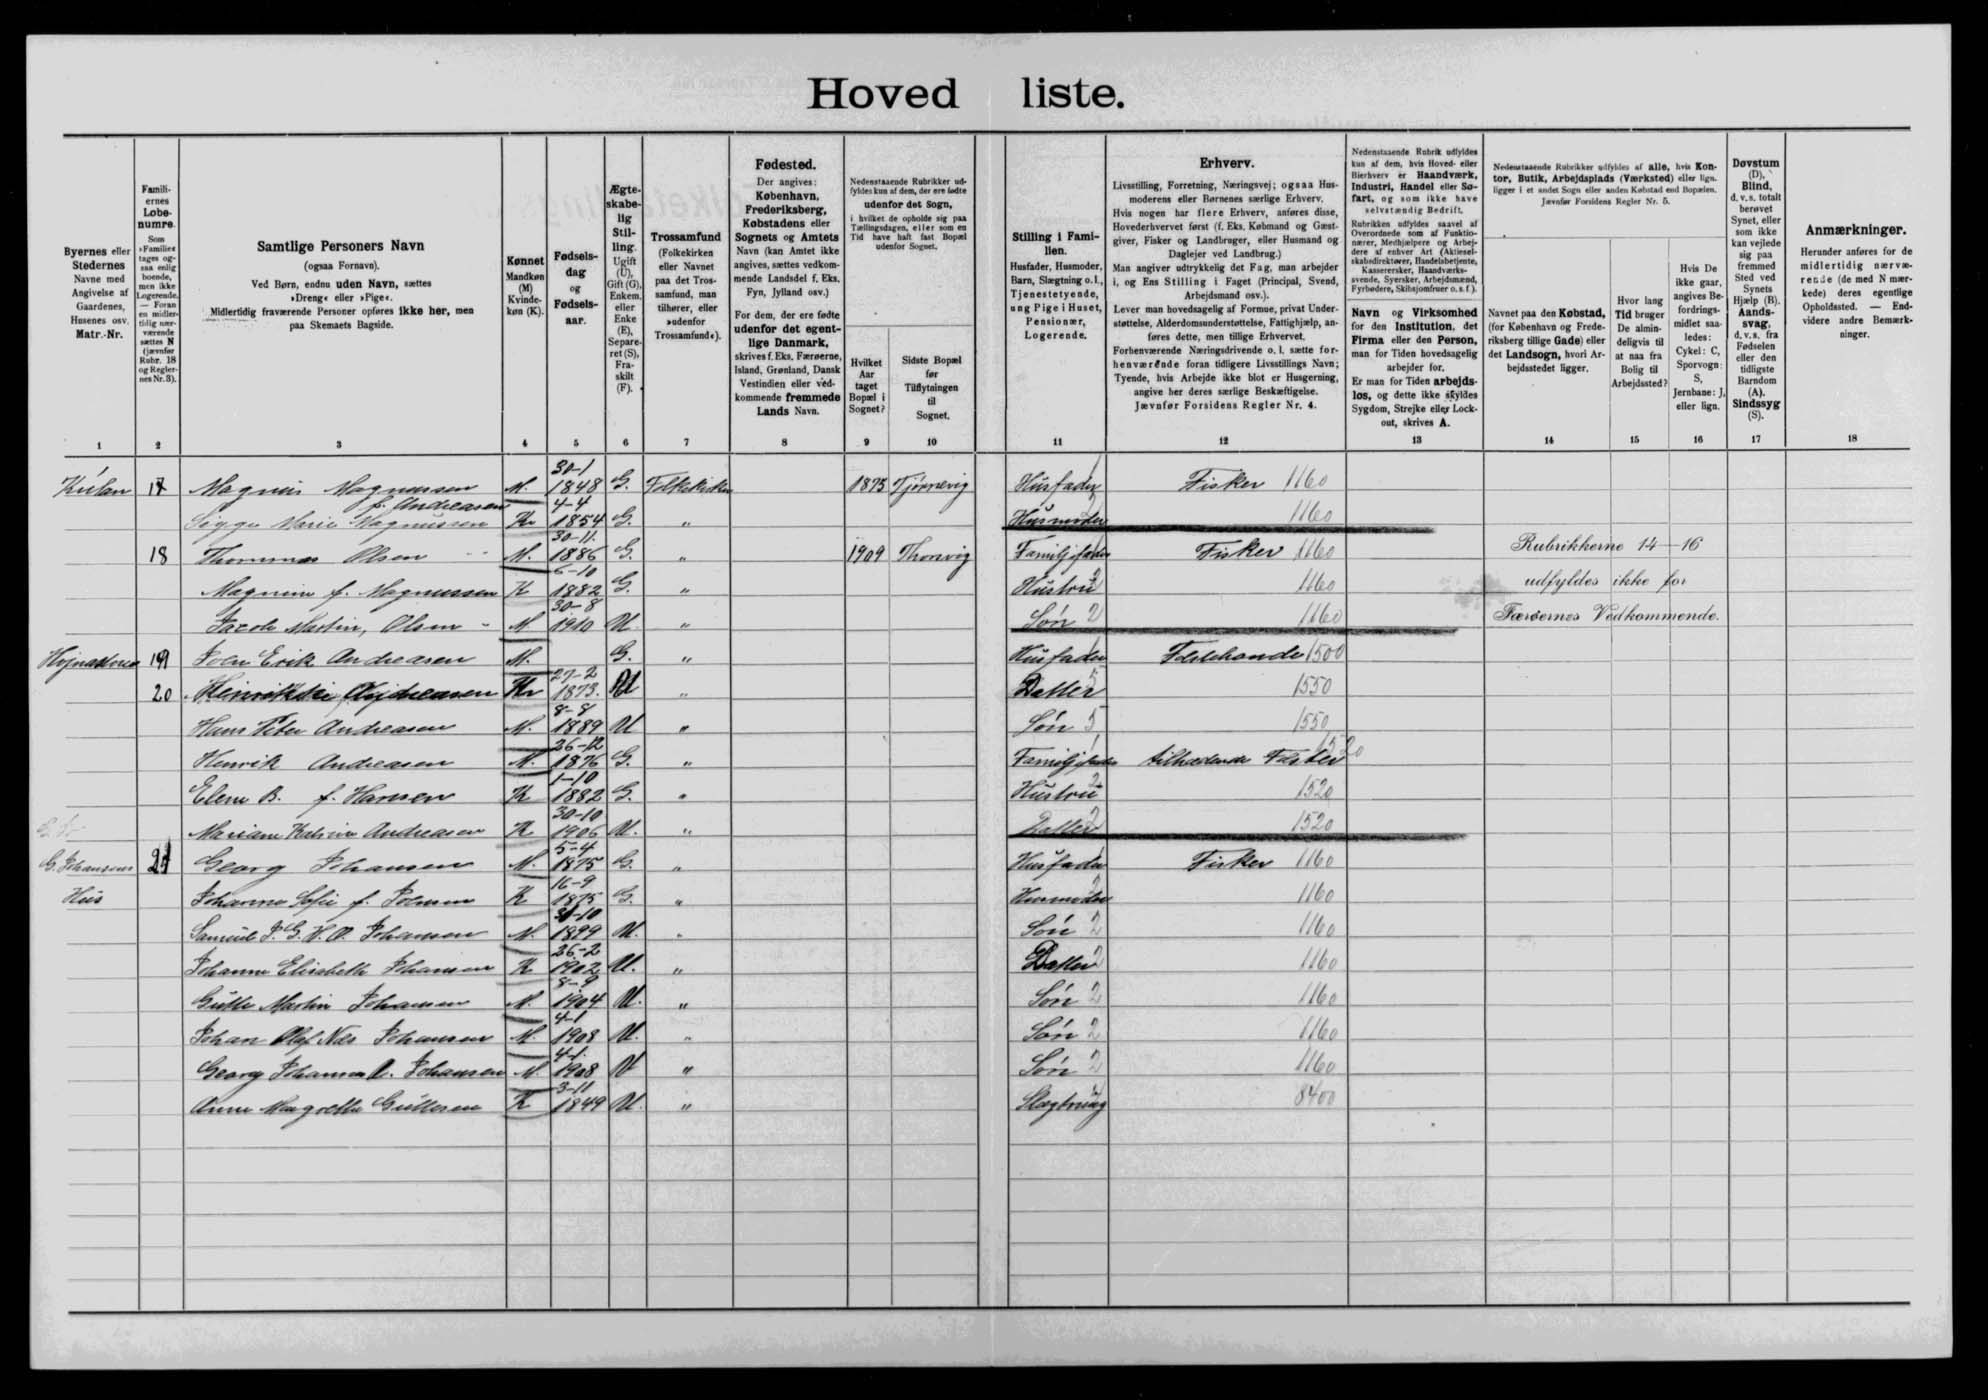 Hovedliste.
Byernes eller Stedernes
Navne med
Angivelse af
Gaardenes,
Husenes osv.
Matr.-Nr.
1
Famili-
ernes
Løbe-
numre.
Som
»Familie«
tages og-
saa enlig
boende,
men ikke
Logerende.
— Foran
en midler-
tidig nær-
værende
sættes N
(jævnfør
Rubr. 18
og Regler-
nes Nr. 3).
2
Samtlige Personers Navn
(ogsaa Fornavn).
Ved Børn, endnu uden Navn, sættes
»Dreng« eller »Pige«.
Midlertidig fraværende Personer opføres ikke her, men
paa Skemaets Bagside.
3
Kønnet
Mandkøn
(M)
Kvinde-
køn (K).
4
Fødsels-
dag
og
Fødsels-
aar.
5
Ægte-
skabe-
lig
Stil-
ling.
Ugift
(U),
Gift (G),
Enkem.
eller
Enke
(E),
Separe-
ret (S),
Fra-
skilt
(F).
6
Trossamfund
(Folkekirken
eller Navnet
paa det Tros-
samfund, man
tilhører, eller
»udenfor
Trossamfund«).
7
Fødested.
Der angives:
København,
Frederiksberg,
Købstadens eller
Sognets og Amtets
Navn (kan Amtet ikke
angives, sættes vedkom-
mende Landsdel f. Eks.
Fyn, Jylland osv.)
For dem, der ere fødte
udenfor det egent-
lige Danmark,
skrives f. Eks. Færøerne,
Island, Grønland, Dansk
Vestindien eller ved-
kommende fremmede
Lands Navn.
8
Nedenstaaende Rubrikker ud-
fyldes kun af dem, der ere fødte
udenfor det Sogn,
i hvilket de opholde sig paa
Tællingsdagen, eller som en
Tid have haft fast Bopæl
udenfor Sognet.
Hvilket
Aar
taget
Bopæl i
Sognet?
9
Sidste Bopæl
før
Tilflytningen
til
Sognet.
10
Stilling i Fami-
lien.
Husfader, Husmoder,
Barn, Slægtning o. l.,
Tjenestetyende,
ung Pige i Huset,
Pensionær,
Logerende.
11
Erhverv.
Livsstilling, Forretning, Næringsvej; ogsaa Hus-
moderens eller Børnenes særlige Erhverv.
Hvis nogen har flere Erhverv, anføres disse,
Hovederhvervet først (f. Eks. Købmand og Gæst-
giver, Fisker og Landbruger, eller Husmand og
Daglejer ved Landbrug.)
Man angiver udtrykkelig det Fag, man arbejder
i, og Ens Stilling i Faget (Principal, Svend,
Arbejdsmand osv.).
Lever man hovedsagelig af Formue, privat Under-
støttelse, Alderdomsunderstøttelse, Fattighjælp, an-
føres dette, men tillige Erhvervet.
Forhenværende Næringsdrivende o. l. sætte for-
henværende foran tidligere Livsstillings Navn;
Tyende, hvis Arbejde ikke blot er Husgerning,
angive her deres særlige Beskæftigelse.
Jævnfør Forsidens Regler Nr. 4.
12
Nedenstaaende Rubrik udfyldes
kun af dem, hvis Hoved- eller
Bierhverv er Haandværk,
Industri, Handel eller Sø-
fart, og som ikke have
selvstændig Bedrift.
Rubrikken udfyldes saavel af
Overordnede som af Funktio-
nærer, Medhjælpere og Arbej-
dere af enhver Art (Aktiesel-
skabsdirektører, Handelsbetjente,
Kassererersker, Haandværks-
svende, Syersker, Arbejdsmænd,
Fyrbødere, Skibsjomfruer o. s. f.).
Navn og Virksomhed
for den Institution, det
Firma eller den Person,
man for Tiden hovedsagelig
arbejder for.
Er man for Tiden arbejds-
løs, og dette ikke skyldes
Sygdom, Strejke eller Lock-
out, skrives A.
13
Nedenstaaende Rubrikker udfyldes af alle, hvis Kon-
tor, Butik, Arbejdsplads (Værksted) eller lign.
ligger i et andet Sogn eller anden Købstad end Bopælen.
Jævnfør Forsidens Regler Nr. 5.
Navnet paa den Købstad,
(for København og Frede-
riksberg tillige Gade) eller
det Landsogn, hvori Ar-
bejdsstedet ligger.
14
Hvor lang
Tid bruger
De almin-
deligvis til
at naa fra
Bolig til
Arbejdssted?
15
Hvis De
ikke gaar,
angives Be-
fordrings-
midlet saa-
ledes:
Cykel: C,
Sporvogn:
S,
Jernbane: J,
eller lign.
16
Døvstum
(D),
Blind,
d. v. s. totalt
berøvet
Synet, eller
som ikke
kan vejlede
sig paa
fremmed
Sted ved
Synets
Hjælp (B).
Aands-
svag,
d. v. s. fra
Fødselen
eller den
tidligste
Barndom
(A).
Sindssyg
(S).
17
Anmærkninger.
Herunder anføres for de
midlertidig nærvæ-
rende (de med N mær-
kede) deres egentlige
Opholdssted. — End-
videre andre Bemærk-
ninger.
18
Kúlan 17 Magnus Magnussen M. 30-1 1848 G. Folkekirken 1875 Tjörnevig Husfader 1 Fisker 1160
Sigga Marie Magnussen f. Andreasen Kv 4-4 1854 G. " Husmoder 2 1160
18 Thommas Olsen M. 30-11. 1886 G. " 1909 Thorsvig Familjefader Fisker 1160 Rubrikkerne 14–16
Magnina f. Magnussen K 6-10 1882 G. " Hustru 2 1160 udfyldes ikke for
Jacob Martin, Olsen M 30-8 1910 U. " Søn 2 1160 Færøernes Vedkommende.
19 Joen Erik Andreasen M. G. " Husfader 1500
20 Andreasen Kv 27-2 1873. U " Datter 5 1550
Hans Peter Andreasen M. 8-8 1889 U " Søn 5 1550
Henrik Andreasen M. 26-12 1876 G. " Familjefader 1520
Elena B. f. Hansen K 1-10 1882 G. " Hustru 2 1520
Mariane Katrina Andreasen K 30-10 1906 U. " Datter 2 1520
G. Johansens 21 Georg Johansen M. 5-4 1875 G. " Husfader 1 Fisker 1160
Hus Johanna Sofie f. Joensen K 16-9 1875 G. " Husmoder 2 1160
Samuel J. G. H. O. Johansen M. 31-10 1899 U. " Søn 2 1160
Johanne Elisabeth Johansen K 26-2 1902 U. " Datter 2 1160
Gutte Martin Johansen M. 8-9 1904 U. " Søn 2 1160
Johan Olaf Nës Johansen M. 4-1 1908 U. " Søn 2 1160
Georg Johannes O. Johansen M. 4-1. 1908 U " Søn 2 1160
Anne Margrethe Guttesen K 3-11 1849 U. " Slægtning 8400